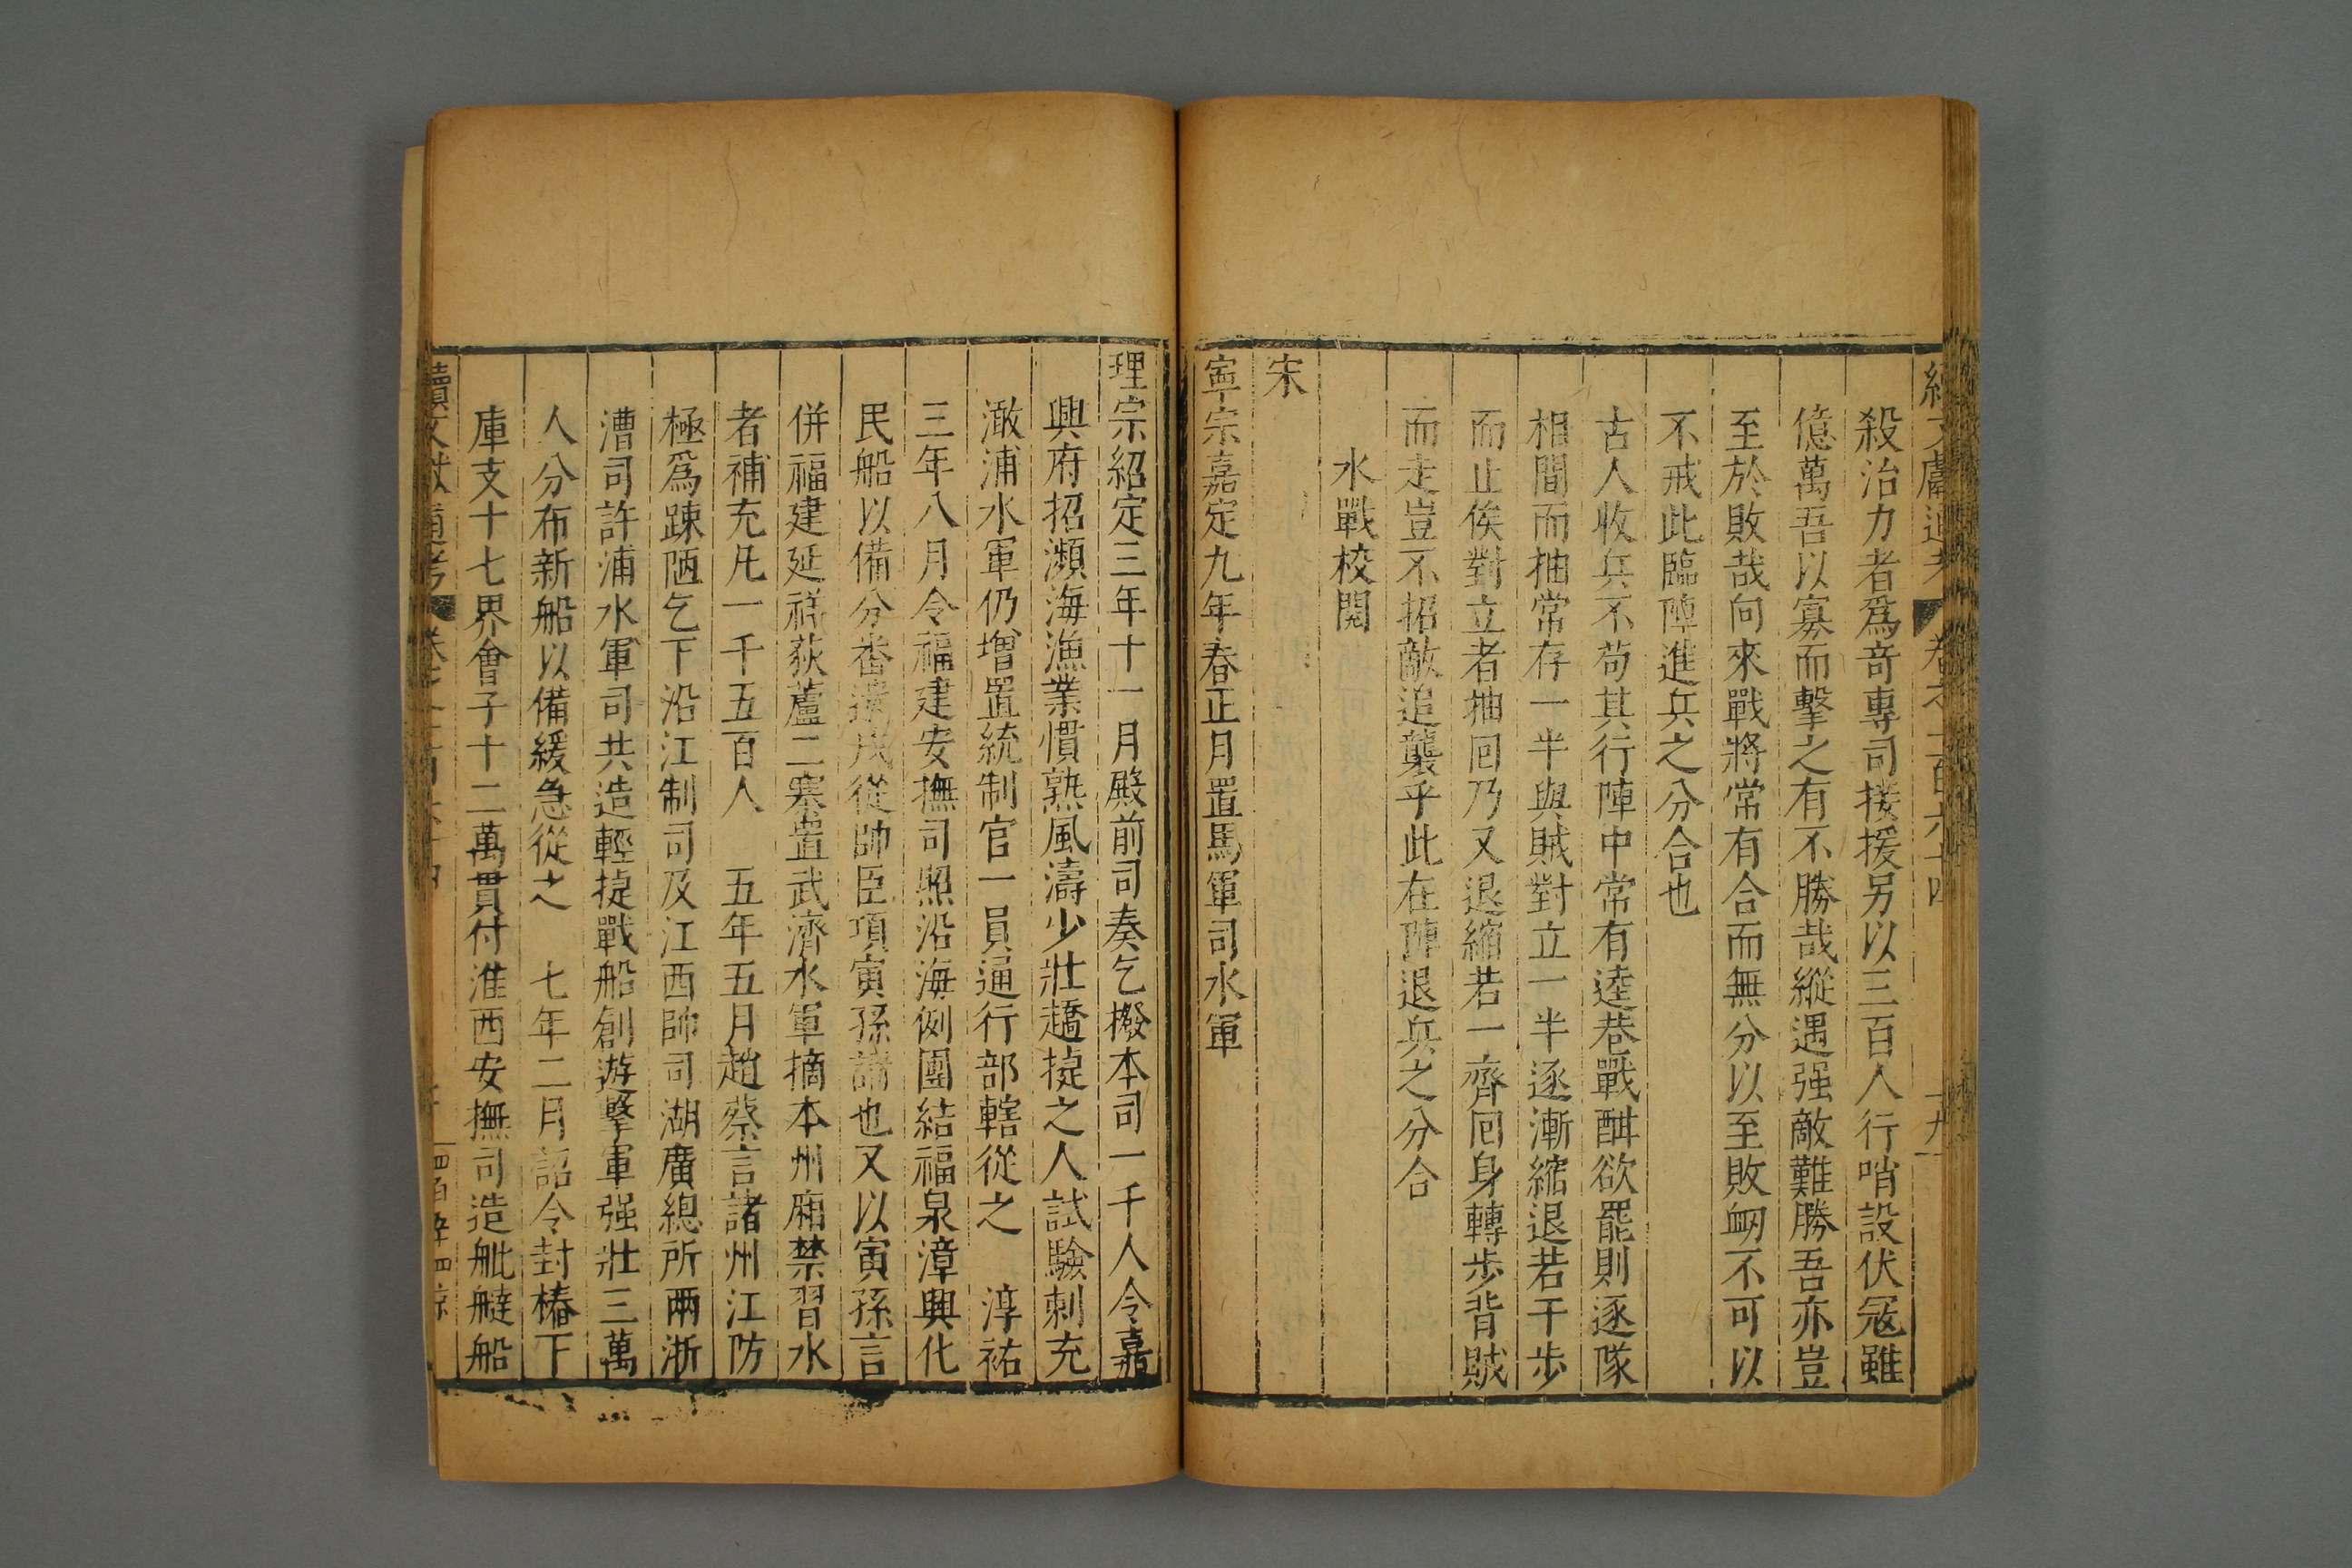 續文獻通考 卷之一百六十四 十九
殺治力者爲竒專司接援另以三百人行哨設伏冦雖
億萬吾以寡而擊之有不勝哉縱遇强敵難勝吾亦豈
至於敗哉向來戰將常有合而無分以至敗衂不可以
不戒此臨陣進兵之分合也
古人收兵不苟其行陣中常有逵巷戰酣欲罷則逐隊
相間而抽常存一半與賊對立一半逐漸縮退若干步
而止俟對立者抽囘乃又退縮若一齊囘身轉步背賊
而走豈不招敵追襲乎此在陣退兵之分合
水戰校閱
宋
寧宗嘉定九年春正月置馬軍司水軍
理宗紹定三年十一月殿前司奏乞撥本司一千人令嘉
興府招瀕海漁業慣熟風濤少壯趫㨗之人試驗刺充
澉浦水軍仍增置統制官一員通行部轄從之 淳祐
三年八月令福建安撫司照沿海例團結福泉漳興化
民船以備分番遣戍從帥臣項寅孫請也又以寅孫言
併福建延祥荻蘆二寨置武濟水軍摘本州廂禁習水
者補充凡一千五百人 五年五月趙蔡言諸州江防
極爲踈陋乞下沿江制司及江西帥司湖廣總所兩浙
漕司許浦水軍司共造輕㨗戰船創遊擊軍强壯三萬
人分布新船以備緩急從之 七年二月詔令封樁下
庫支十七界會子十二萬貫付淮西安撫司造舭艓船
續文獻通考 卷之一百六十四